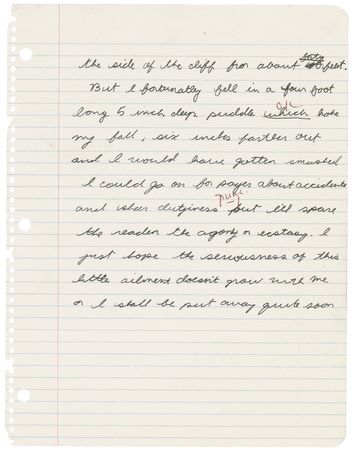 forty
the side of the cliff from about feet.
But I fortunatly fell in a four foot
long 5 inch deep puddle which broke
my fall, six inches farther out
and I would have gotten smushed
I could go on for pages about accidents
punc.
and but I'll spare
the reader the agony or ecstasy. I
just hope the seriousness of this
little ailment doesn't grow with me
or I shall be put away quite soon